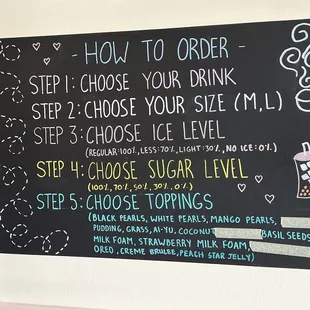 - HOW TO ORDER -
STEP 1: CHOOSE YOUR DRINK
STEP 2: CHOOSE YOUR SIZE (M,L)
STEP 3: CHOOSE ICE LEVEL
(REGULAR:100%, LESS:70%, LIGHT:30%, NO ICE:0%)
STEP 4: CHOOSE SUGAR LEVEL
(100%, 70%, 50%, 30%, 0%)
STEP 5: CHOOSE TOPPINGS
(BLACK PEARLS, WHITE PEARLS, MANGO PEARLS,
PUDDING, GRASS, AI-YU, COCONUT BASIL SEEDS
MILK FOAM, STRAWBERRY MILK FOAM,
OREO, CREME BRULEE, PEACH STAR JELLY)